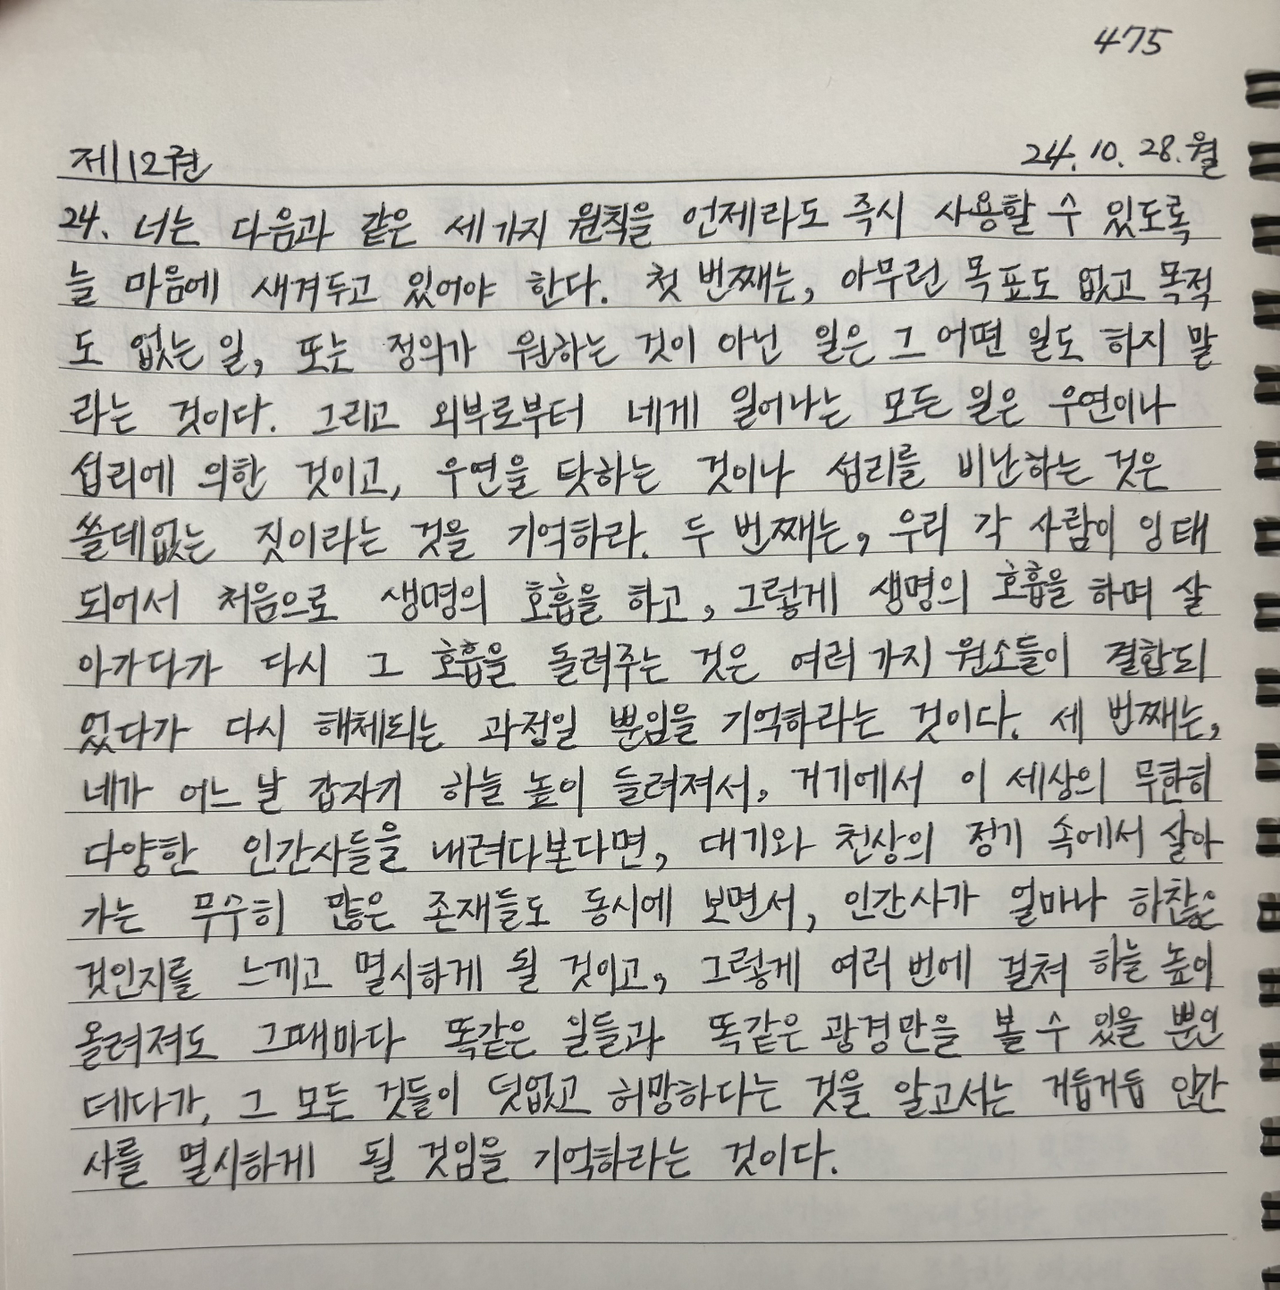 475
제12권 24. 10. 28. 월
24. 너는 다음과 같은 세가지 원칙을 언제라도 즉시 사용할 수 있도록
늘 마음에 새겨두고 있어야 한다. 첫 번째는, 아무런 목표도 없고 목적
도 없는 일, 또는 정의가 원하는 것이 아닌 일은 그 어떤 일도 하지 말
라는 것이다. 그리고 외부로부터 네게 일어나는 모든 일은 우연이나
섭리에 의한 것이고, 우연을 탓하는 것이나 섭리를 비난하는 것은
쓸데없는 짓이라는 것을 기억하라. 두 번째는, 우리 각 사람이 잉태
되어서 처음으로 생명의 호흡을 하고, 그렇게 생명의 호흡을 하며 살
아가다가 다시 그 호흡을 돌려주는 것은 여러가지 원소들이 결합되
었다가 다시 해체되는 과정일 뿐임을 기억하라는 것이다. 세 번째는,
네가 어느 날 갑자기 하늘 높이 들려져서, 거기에서 이 세상의 무한히
다양한 인간사들을 내려다본다면, 대기와 천상의 정기 속에서 살아
가는 무수히 많은 존재들도 동시에 보면서, 인간사가 얼마나 하찮은
것인지를 느끼고 멸시하게 될 것이고, 그렇게 여러 번에 걸쳐 하늘 높이
올려져도 그때마다 똑같은 일들과 똑같은 광경만을 볼 수 있을 뿐인
데다가, 그 모든 것들이 덧없고 허망하다는 것을 알고서는 거듭거듭 인간
사를 멸시하게 될 것임을 기억하라는 것이다.